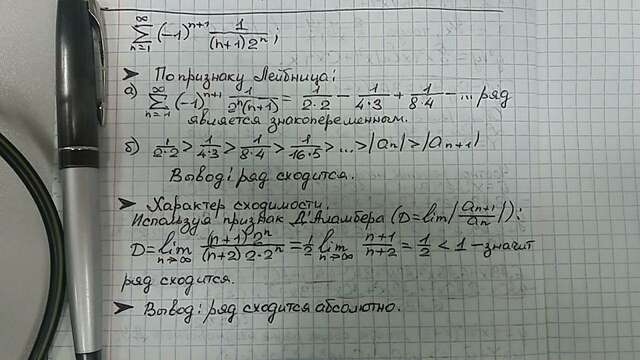 ∑_{n=1}^{∞} (-1)^{n+1} 1/((n+1)2^n) ;
➤ По признаку Лейбница:
а) ∑_{n=1}^{∞} (-1)^{n+1} 1/(2^n(n+1)) = 1/(2·2) - 1/(4·3) + 1/(8·4) - ... ряд
является знакопеременным.
б) 1/(2·2) > 1/(4·3) > 1/(8·4) > 1/(16·5) > ... > |a_n| > |a_{n+1}|
Вывод: ряд сходится.
➤ Характер сходимости.
Используя признак Д'Аламбера (D = lim |a_{n+1}/a_n|):
D = lim_{n→∞} ((n+1) 2^n)/((n+2) 2·2^n) = 1/2 lim_{n→∞} (n+1)/(n+2) = 1/2 < 1 - значит
ряд сходится.
➤ Вывод: ряд сходится абсолютно.